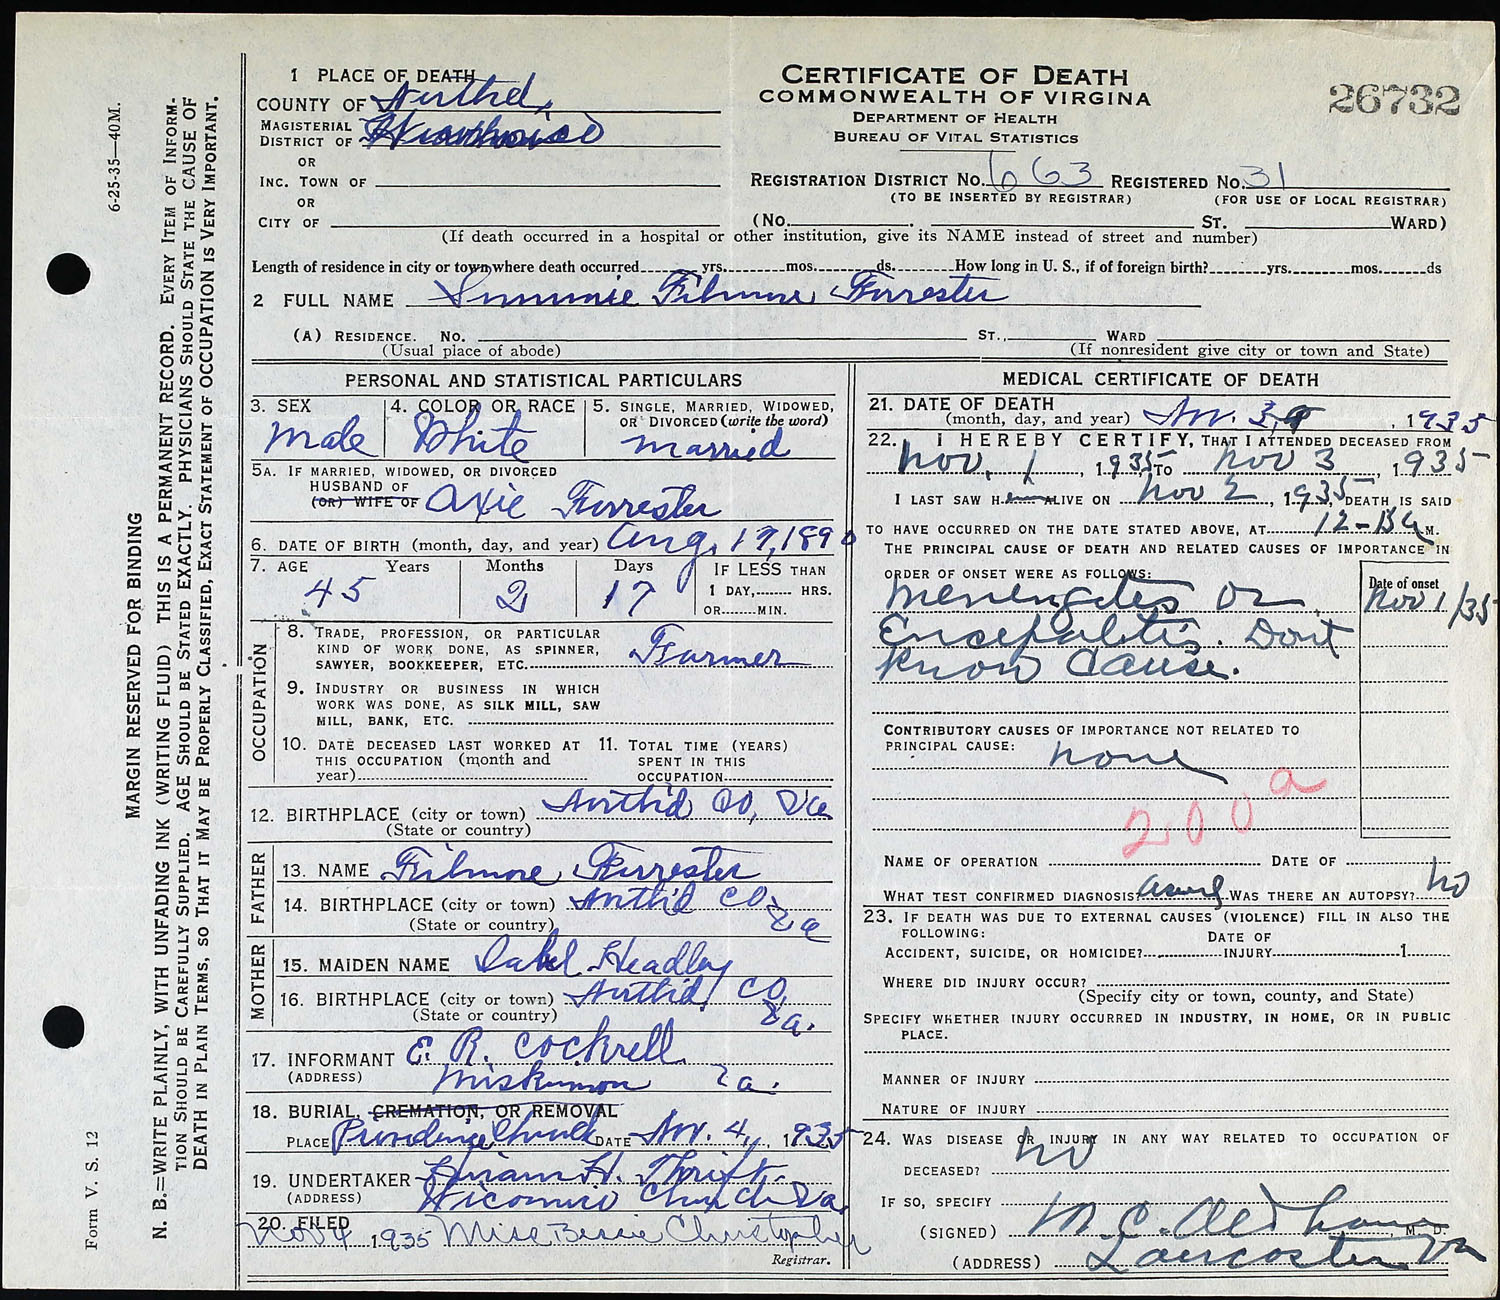 1 PLACE OF DEATH
COUNTY OF Northd,
MAGISTERIAL
DISTRICT OF
OR
INC. TOWN OF
OR
CITY OF
CERTIFICATE OF DEATH
COMMONWEALTH OF VIRGINA
DEPARTMENT OF HEALTH
BUREAU OF VITAL STATISTICS
26732
REGISTRATION DISTRICT NO. 663 REGISTERED NO. 31
(TO BE INSERTED BY REGISTRAR) (FOR USE OF LOCAL REGISTRAR)
(No. ST. WARD)
(If death occurred in a hospital or other institution, give its NAME instead of street and number)
Length of residence in city or town where death occurred yrs. mos. ds. How long in U. S., if of foreign birth? yrs. mos. ds
2 FULL NAME Filmore Forrester
(A) RESIDENCE. No. ST., WARD
(Usual place of abode) (If nonresident give city or town and State)
PERSONAL AND STATISTICAL PARTICULARS
3. SEX
Male
4. COLOR OR RACE
White
5. SINGLE, MARRIED, WIDOWED,
OR DIVORCED (write the word)
married
5A. IF MARRIED, WIDOWED, OR DIVORCED
HUSBAND OF
(OR) WIFE OF Oxie Forrester
6. DATE OF BIRTH (month, day, and year) Aug. 17, 1890
7. AGE Years Months Days IF LESS THAN
45 2 17 1 DAY, HRS.
OR MIN.
OCCUPATION
8. TRADE, PROFESSION, OR PARTICULAR
KIND OF WORK DONE, AS SPINNER,
SAWYER, BOOKKEEPER, ETC. Farmer
9. INDUSTRY OR BUSINESS IN WHICH
WORK WAS DONE, AS SILK MILL, SAW
MILL, BANK, ETC.
10. DATE DECEASED LAST WORKED AT
THIS OCCUPATION (month and
year)
11. TOTAL TIME (YEARS)
SPENT IN THIS
OCCUPATION
12. BIRTHPLACE (city or town) North'd Co, Va
(State or country)
FATHER
13. NAME Filmore Forrester
14. BIRTHPLACE (city or town) North'd Co,
(State or country) Va
MOTHER
15. MAIDEN NAME Isabel Headley
16. BIRTHPLACE (city or town) North'd Co,
(State or country) Va.
17. INFORMANT E. R. Cockrell
(ADDRESS) Miskimon Va.
18. BURIAL, CREMATION, OR REMOVAL
PLACE Providence Church DATE Nov. 4, 1935
19. UNDERTAKER Hiram H. Thrift
(ADDRESS) Wicomico Church Va
20. FILED
Nov 4 1935 Miss Bessie Christopher
Registrar.
MEDICAL CERTIFICATE OF DEATH
21. DATE OF DEATH
(month, day, and year) Nov. 3, 1935
22. I HEREBY CERTIFY, THAT I ATTENDED DECEASED FROM
Nov. 1, 1935 TO Nov 3, 1935
I LAST SAW H. ALIVE ON Nov 2, 1935 DEATH IS SAID
TO HAVE OCCURRED ON THE DATE STATED ABOVE, AT M.
THE PRINCIPAL CAUSE OF DEATH AND RELATED CAUSES OF IMPORTANCE IN
ORDER OF ONSET WERE AS FOLLOWS:
Date of onset
Menengetes or Nov 1/35
Encepalitis. Dont
Know cause.
CONTRIBUTORY CAUSES OF IMPORTANCE NOT RELATED TO
PRINCIPAL CAUSE: none
200 a
NAME OF OPERATION DATE OF
WHAT TEST CONFIRMED DIAGNOSIS? WAS THERE AN AUTOPSY? no
23. IF DEATH WAS DUE TO EXTERNAL CAUSES (VIOLENCE) FILL IN ALSO THE
FOLLOWING: DATE OF
ACCIDENT, SUICIDE, OR HOMICIDE? INJURY 1
WHERE DID INJURY OCCUR?
(Specify city or town, county, and State)
SPECIFY WHETHER INJURY OCCURRED IN INDUSTRY, IN HOME, OR IN PUBLIC
PLACE.
MANNER OF INJURY
NATURE OF INJURY
24. WAS DISEASE OR INJURY IN ANY WAY RELATED TO OCCUPATION OF
DECEASED? no
IF SO, SPECIFY
(SIGNED) M. C. Oldham, M. D.
(ADDRESS) Lancaster Va
6-25-35—40M.
MARGIN RESERVED FOR BINDING
N. B.=WRITE PLAINLY, WITH UNFADING INK (WRITING FLUID) THIS IS A PERMANENT RECORD. EVERY ITEM OF INFORM-
TION SHOULD BE CAREFULLY SUPPLIED. AGE SHOULD BE STATED EXACTLY. PHYSICIANS SHOULD STATE THE CAUSE OF
DEATH IN PLAIN TERMS, SO THAT IT MAY BE PROPERLY CLASSIFIED, EXACT STATEMENT OF OCCUPATION IS VERY IMPORTANT.
Form V. S. 12